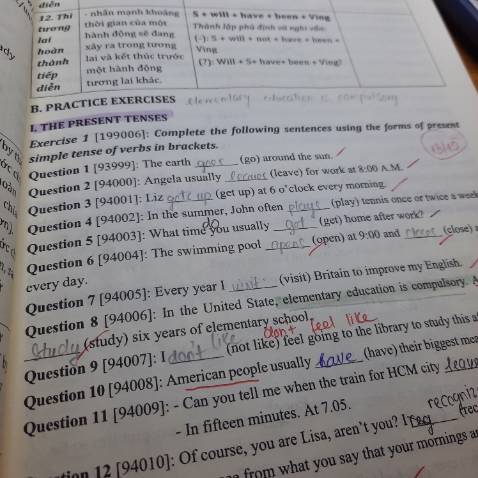 diễn
12. Thì
tương
lai
hoàn
thành
tiếp
diễn
- nhấn mạnh khoảng
thời gian của một
hành động sẽ đang
xảy ra trong tương
lai và kết thúc trước
một hành động
tương lai khác.
S + will + have + been + Ving
Thành lập phủ định và nghi vấn:
(-): S + will + not + have + been +
Ving
(?): Will + S+ have+ been + Ving?
B. PRACTICE EXERCISES elementary education is compulsory
I. THE PRESENT TENSES
Exercise 1 [199006]: Complete the following sentences using the forms of present
simple tense of verbs in brackets.
Question 1 [93999]: The earth goes (go) around the sun.
Question 2 [94000]: Angela usually leaves (leave) for work at 8:00 A.M.
Question 3 [94001]: Liz gets up (get up) at 6 o'clock every morning.
Question 4 [94002]: In the summer, John often plays (play) tennis once or twice a week
Question 5 [94003]: What time do you usually get (get) home after work?
Question 6 [94004]: The swimming pool opens (open) at 9:00 and closes (close)
every day.
Question 7 [94005]: Every year I visit (visit) Britain to improve my English.
Question 8 [94006]: In the United State, elementary education is compulsory.
Study (study) six years of elementary school.
don't feel like
Question 9 [94007]: I don't like (not like) feel going to the library to study this
Question 10 [94008]: American people usually have (have) their biggest
Question 11 [94009]: - Can you tell me when the train for HCM city leave
- In fifteen minutes. At 7.05.
12 [94010]: Of course, you are Lisa, aren't you? I
from what you say that your mornings